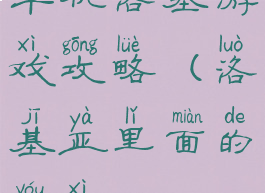 机洛基游
xì gōng lüè luò
戏攻略（洛
jī yà lǐ miàn de
基亚里面的
yóu xì